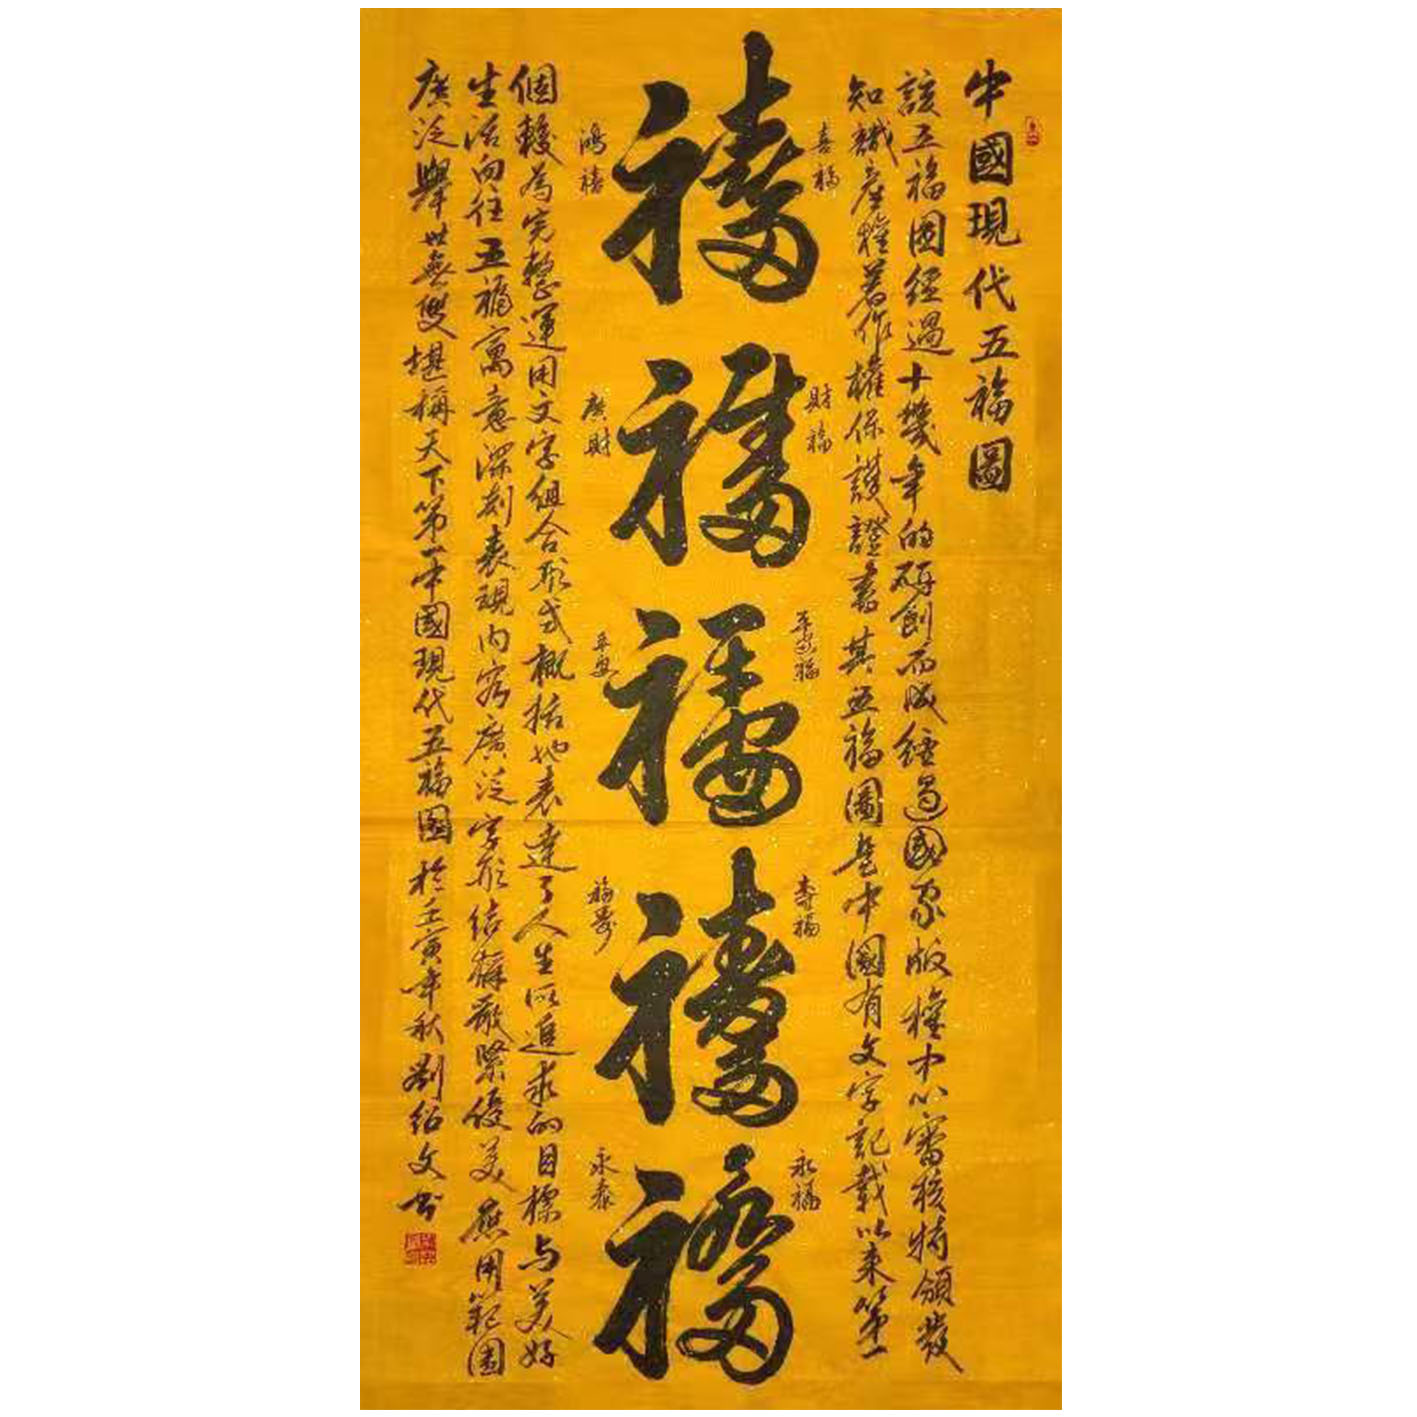 中國現代五福圖
該五福圖經過十幾年的研創而成經過國家版權中心審核特頒發
知識產權著作權保護證書其五福圖是中國有文字記載以來第一
喜福
財福
平安福
壽福
永福
鴻禧
廣財
平安
福壽
永泰
個較為完整運用文字組合形式概括地表達了人生所追求的目標与美好
生活向往五福寓意深刻表現內容廣泛字形結構嚴緊優美應用範圍
廣泛舉世無雙堪稱天下第一中國現代五福圖於壬寅年秋劉紹文書